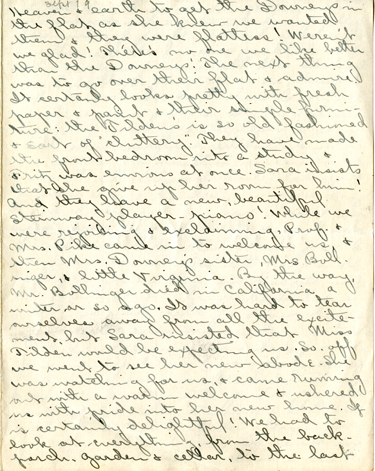 Sept 19
Heaven & earth to get the Downeys in
the flat, as she knew we wanted
them & they were flatless! Weren't
we glad! There's no one we like better
than the Downeys! The next thing
was to go over their flat & admire.
It certainly looks pretty with fresh
paper & paint & their simple furni-
ture: the Tilden's is so old fashioned
& sort of "cluttery." They have made
the front bedroom into a study &
was envious at once. Sara insists
that she give up her room for him!
And they have a new, beautiful
Steinway player-piano! While we
were rejoicing & exclaiming, Prof. &
Mrs. came in to welcome us, &
then Mrs. Downey's sister, Mrs. Boll-
inger, & little Virginia. By the way,
Mr. Bollinger died in California a
winter or so ago. It was hard to tear
ourselves away from all the excite-
ment but Sara insisted that Miss
Tilden would be expecting us. So, off
we went to see her new abode. She
was watching for us, & came running
out with a warm welcome & ushered
us with pride into her new home. It
is certainly delightful! We had to
look at everything, from the back-
porch, garden & cellar, to the last